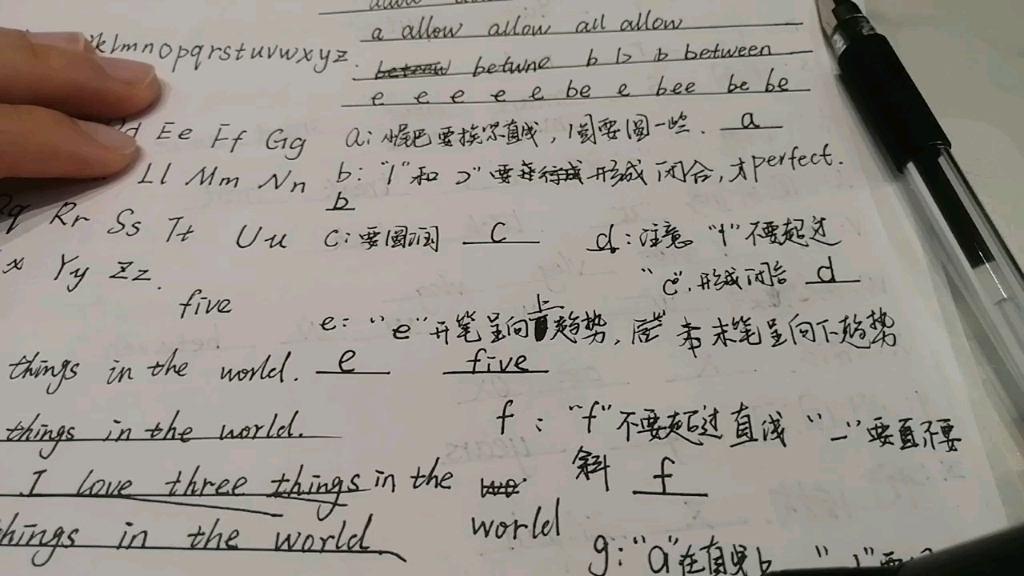 a allow allow all allow
klmnopqrstuvwxyz.
betune b b between
e e e e e be e bee be be
d Ee Ff Gg
a: 尾巴要挨尽直线，圆要圆一些. a
Ll Mm Nn
b: "l"和"要形成闭合，才perfect.
b
q Rr Ss Tt Uu
c: 要圆润 c
d: 注意"l"不要超过
"c",形成闭合 d
x Yy Zz.
five
e: "e"开笔呈向上趋势，末笔呈向下趋势
things in the world. e five
things in the world.
f: "f"不要超过直线"-"要直不要
斜 f
I love three things in the
world
things in the world
g: "a"在直